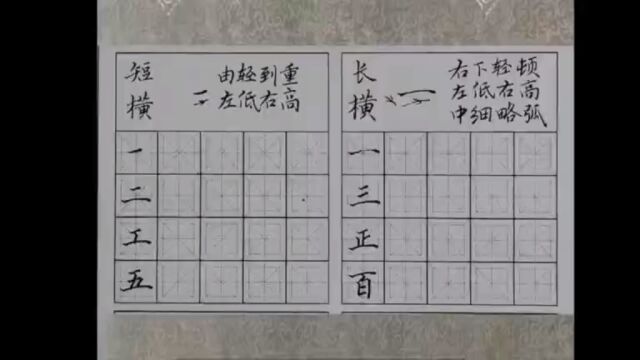 短横
由轻到重
左低右高
一
二
工
五
长横
右下轻顿
左低右高
中细略弧
一
三
正
百